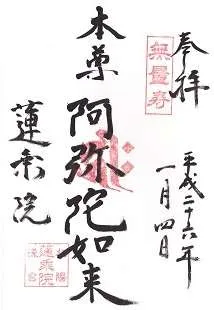 奉拝
無量寿
平成二十六年
一月四日
本尊
阿弥陀如来
蓮乗院
蓮乗院